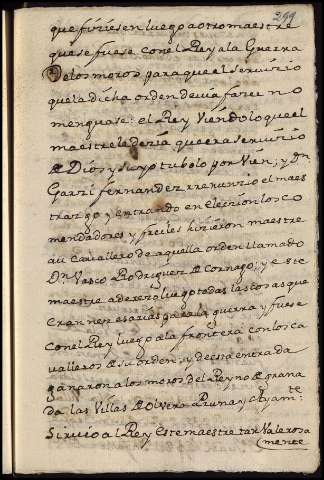 299
que fiziesen luego a otro maestre
que se fuese con el Rey a la Guerra
de los moros para que el serviçio
que la dicha orden devia fazer no
menguase: el Rey Viéndolo que el
maestre le dezía que era serviçio
de Dios y suyo tubolo por Vien; y Dn.
Garzi fernandez rrenunzio el maes
trazgo y entrando en Elezión los co
mendadores y freiles hizieron maestre
a un Cavallero de aquella orden llamado
Dn. Vasco Rodriguez de Cornago; y este
maestre aderezo luego todas las cosas que
eran nezesarias para la guerra y fuese
con el Rey luego a la frontera con los ca
valleros de su orden; y de esta entrada
ganaron a los moros del Reyno de grana
da las Villas de Olvera Pruna y Ayamte.
Sirvio al Rey Este maestre tan Valerosa
mente